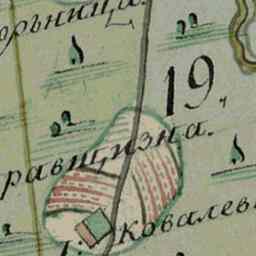 ерьница.
19,
равщизна.
Ковалевъ